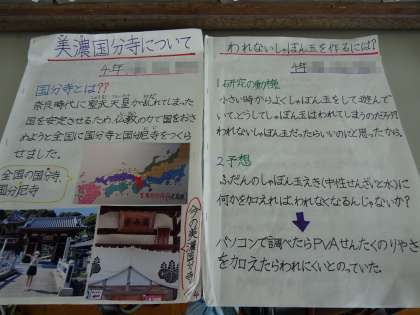 美濃国分寺について
4年
国分寺とは??
奈良時代に聖武天皇が乱れてしまった
国を安定させるため、仏教の力で国をおさ
めようと全国に国分寺と国分尼寺をつくら
せました。
全国の国分寺
国分尼寺
今の美濃国分寺
われないしゃぼん玉を作るには?
4年
1研究の動機
小さい時からよくしゃぼん玉をして遊んで
いて、どうしてしゃぼん玉はわれてしまうのだろう?
われないしゃぼん玉だったらいいのにと思ったから。
2予想
ふだんのしゃぼん玉えき(中性せんざいと水)に
何かを加えれば、われなくなるんじゃないか?
パソコンで調べたらPVAせんたくのりやさ
を加えたらわれにくいとのっていた。